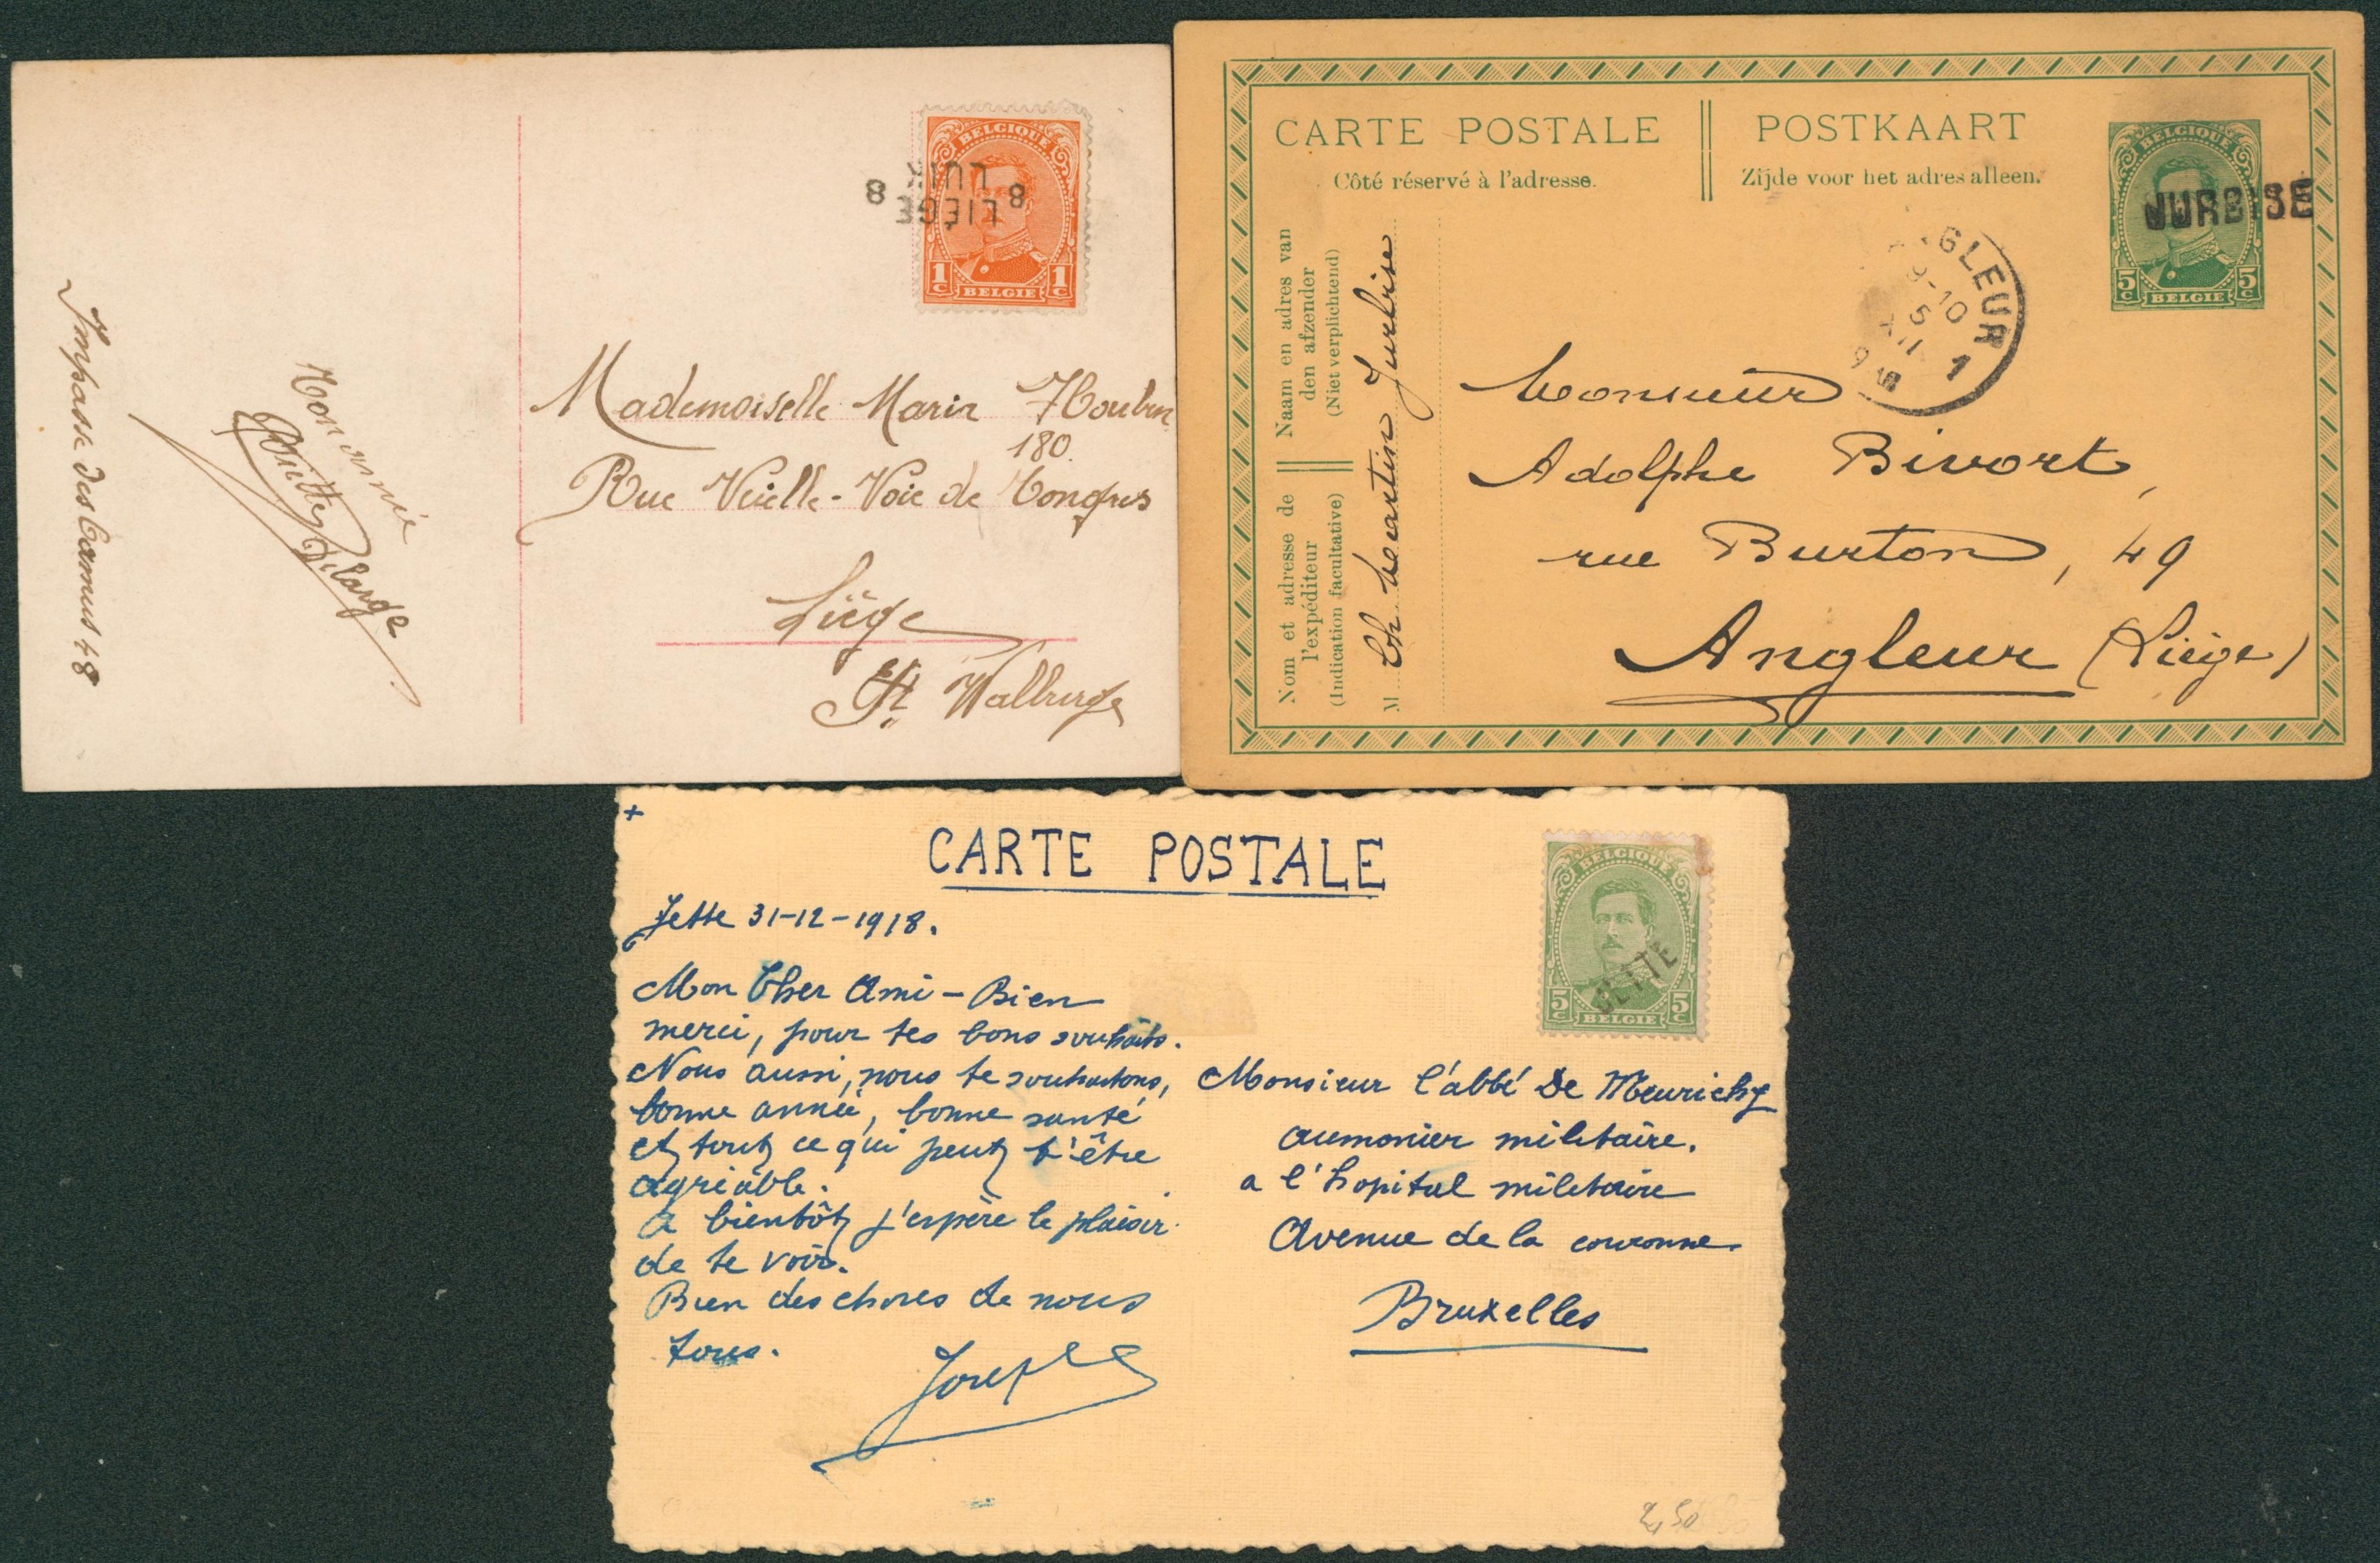 BELGIQUE
LUIK
8 8
LIEGE
1c 1c
BELGIE
Mademoiselle Marie
180
Rue Vieille-Voie de Tongres
Liège
Ste Walburge
Mon amie
Delarge
Impasse des Carmes 48
CARTE POSTALE
Côté réservé à l'adresse.
POSTKAART
Zijde voor het adres alleen.
BELGIQUE
JURBISE
5c 5c
BELGIE
GLEUR 1
9-10
5
XII
Naam en adres van
den afzender
(Niet verplichtend)
Nom et adresse de
l'expéditeur
(Indication facultative)
M Ch. Martin Jurbise
Monsieur
Adolphe Bivort,
rue Burton, 49
Angleur (Liége)
+
CARTE POSTALE
BELGIQUE
JETTE
5c 5c
BELGIE
Jette 31-12-1918.
Mon Cher Ami - Bien
merci, pour tes bons souhaits.
Nous aussi, nous te souhaitons,
bonne année, bonne santé
et tout ce qui peut t'être
agréable.
a bientôt j'espère le plaisir
de te voir.
Bien des choses de nous
tous.
Joseph
Monsieur l'abbé De Meurichy
aumonier militaire.
a l'hopital militaire
Avenue de la couronne
Bruxelles
2,50